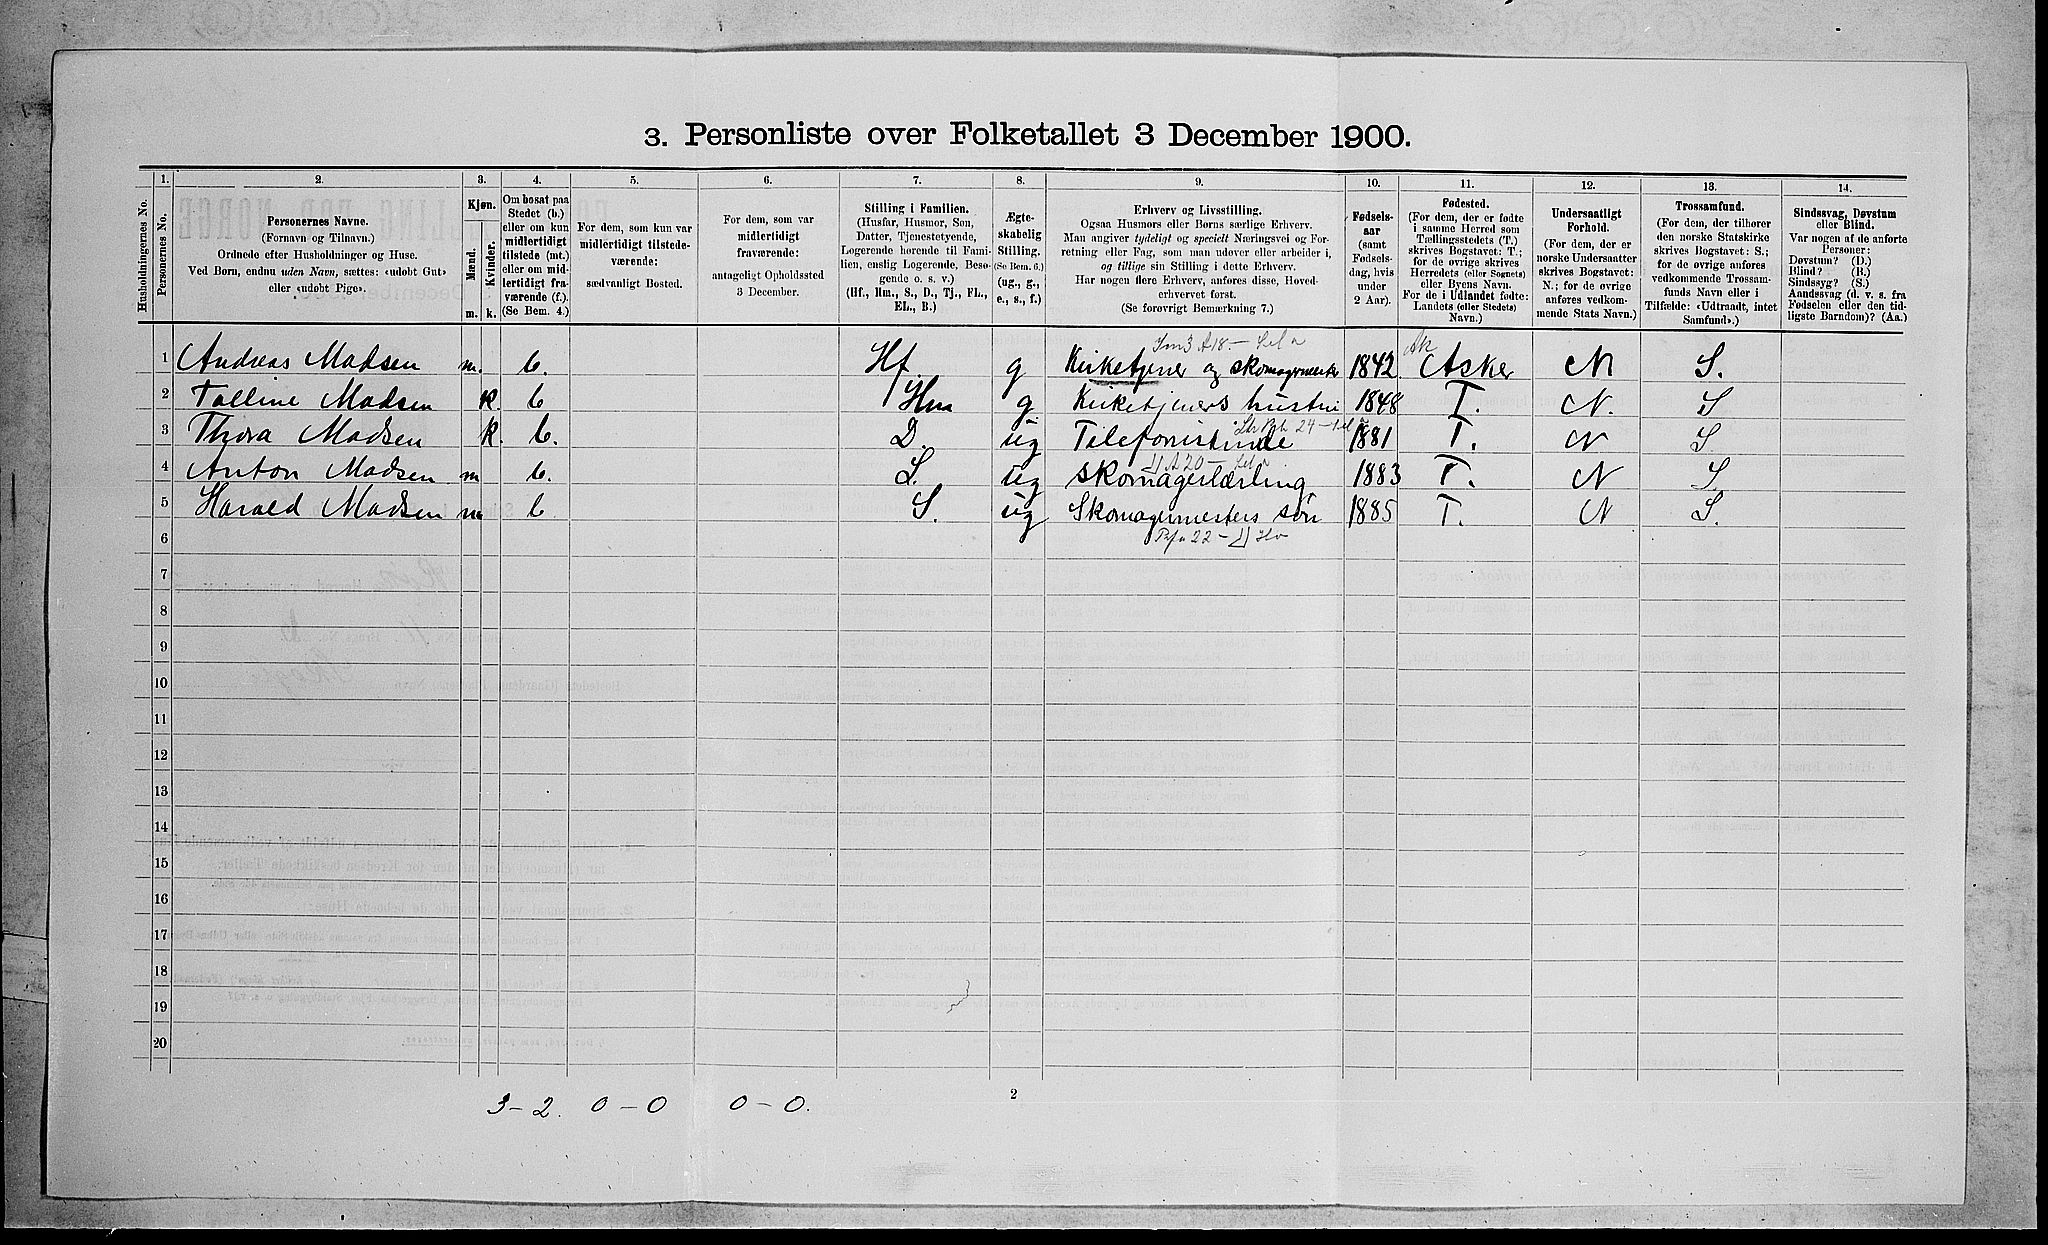 3. Personliste over Folketallet 3 December 1900.
1. 2. 3. 4. 5. 6. 7. 8. 9. 10. 11. 12. 13. 14.
Husholdningernes No.
Personernes No.
Personernes Navne.
(Fornavn og Tilnavn.)
Ordnede efter Husholdninger og Huse.
Ved Børn, endnu uden Navn, sættes: «udobt Gut»
eller «udøbt Pige».
Kjøn.
Mænd.
Kvinder.
m. k.
Om bosat paa
Stedet (b.)
eller om kun
midlertidigt
tilstede (mt.)
eller om mid-
lertidigt fra-
værende (f.).
(Se Bem. 4.)
For dem, som kun var
midlertidigt tilstede-
værende:
sædvanligt Bosted.
For dem, som var
midlertidigt
fraværende:
antageligt Opholdssted
3 December.
Stilling i Familien.
(Husfar, Husmor, Søn,
Datter, Tjenestetyende,
Logerende hørende til Fami-
lien, enslig Logerende, Besø-
gende o. s. v.)
(Hf., Hm., S., D., Tj., FL.,
EL., B.)
Ægte-
skabelig
Stilling.
(Se Bem. 6.)
(ug., g.,
e., s., f.)
Erhverv og Livsstilling.
Ogsaa Husmors eller Børns særlige Erhverv.
Man angiver tydeligt og specielt Næringsvei og For-
retning eller Fag, som man udøver eller arbeider i,
og tillige sin Stilling i dette Erhverv.
Har nogen flere Erhverv, anføres disse, Hoved-
erhvervet først.
(Se forøvrigt Bemærkning 7.)
Fødsels-
aar
(samt
Fødsels-
dag, hvis
under
2 Aar).
Fødested.
(For dem, der er fødte
i samme Herred som
Tællingsstedets (T.)
skrives Bogstavet: T.;
for de øvrige skrives
Herredets (eller Sognets)
eller Byens Navn.
For de i Udlandet fødte:
Landets (eller Stedets)
Navn.)
Undersaatligt
Forhold.
(For dem, der er
norske Undersaatter
skrives Bogstavet:
N.; for de øvrige
anføres vedkom-
mende Stats Navn.)
Trossamfund.
(For dem, der tilhører
den norske Statskirke
skrives Bogstavet: S.;
for de øvrige anføres
vedkommende Trossam-
funds Navn eller i
Tilfælde: «Udtraadt, intet
Samfund».)
Sindssvag, Døvstum
eller Blind.
Var nogen af de anførte
Personer:
Døvstum? (D.)
Blind? (B.)
Sindssyg? (S.)
Aandssvag (d. v. s. fra
Fødselen eller den tid-
ligste Barndom)? (Aa.)
1 Andreas Madsen m. b. Hf. g Kirketjener og skomagermester 1842 Asker N S.
2 Talline Madsen k. b Hm g. Kirketjeners hustru 1848 T. N. S
3 Thora Madsen k. b. D. ug Telefonistinde 1881 T. N S.
4 Anton Madsen m b. S. ug skomagerlærling 1883 T. N S
5 Harald Madsen m b S. ug Skomagermesters søn 1885 T. N S.
6
7
8
9
10
11
12
13
14
15
16
17
18
19
20
3 - 2. 0 - 0 0 - 0.
2